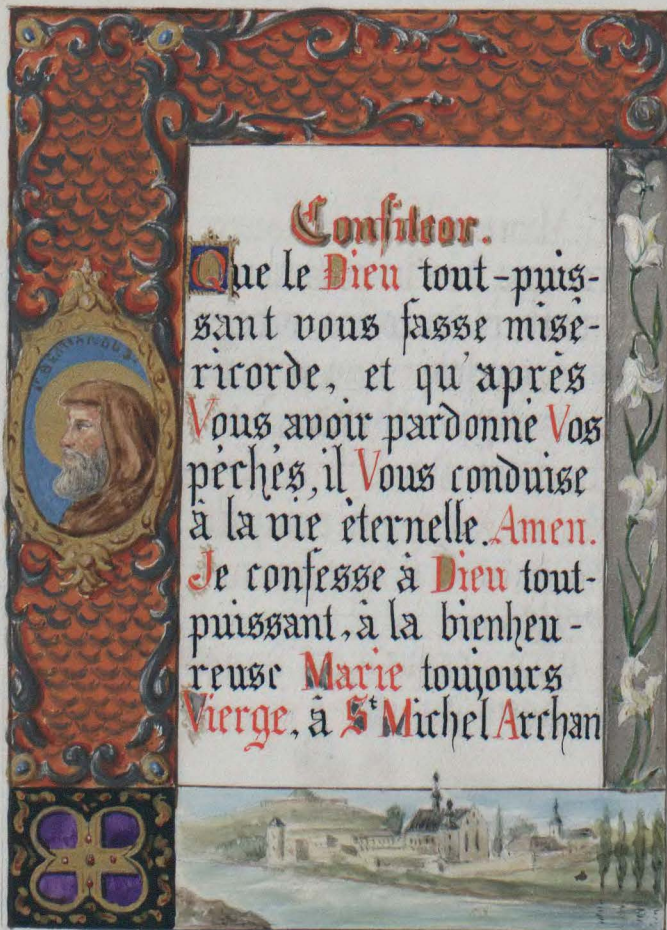 Confiteor.
Que le Dieu tout-puis-
sant vous fasse misé-
ricorde, et qu'après
Vous avoir pardonné Vos
péchés, il Vous conduise
à la vie éternelle. Amen.
Je confesse à Dieu tout-
puissant, à la bienheu-
reuse Marie toujours
Vierge, à St Michel Archan